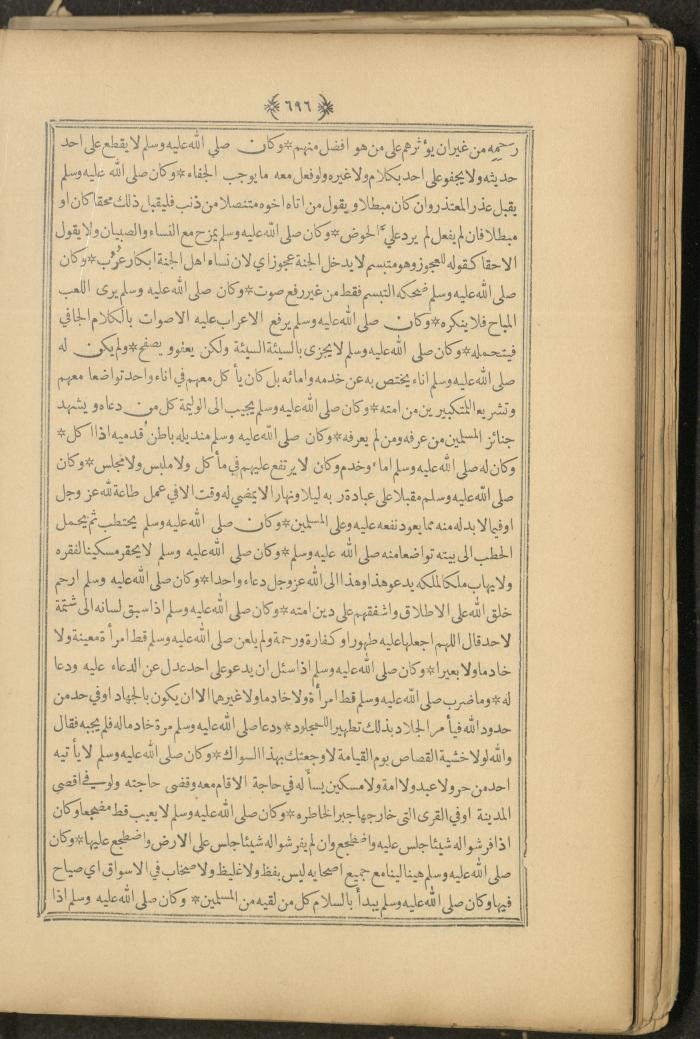 ﴿٦٩٦﴾
رحمه من غير ان يؤثرهم على من هو افضل منهم * وكان صلى الله عليه وسلم لا يقطع على احد
حديثه ولا يجفو على احد بكلام ولا غيره ولو فعل معه ما يوجب الجفاء * وكان صلى الله عليه وسلم
يقبل عذر المعتذر وان كان مبطلا ويقول من اتاه اخوه متنصلا من ذنب فليقبل ذلك محقا كان او
مبطلا فان لم يفعل لم يرد على الحوض * وكان صلى الله عليه وسلم يمزح مع النساء والصبيان ولا يقول
الاحقا كقوله للعجوز وهو متبسم لا يدخل الجنة عجوز اي لان نساء اهل الجنة ابكار عُرُب * وكان
صلى الله عليه وسلم ضحكه التبسم فقط من غير رفع صوت * وكان صلى الله عليه وسلم يرى اللعب
المباح فلا ينكره * وكان صلى الله عليه وسلم يرفع الاعراب عليه الاصوات بالكلام الجافي
فيتحمله * وكان صلى الله عليه وسلم لا يجزى بالسيئة السيئة ولكن يعفو ويصفح * ولم يكن له
صلى الله عليه وسلم اناء يختص به عن خدمه وامائه بل كان يأكل معهم في اناء واحد تواضعا معهم
وتشريعا للمتكبرين من امته * وكان صلى الله عليه وسلم يجيب الى الوليمة كل من دعاه ويشهد
جنائز المسلمين من عرفه ومن لم يعرفه * وكان صلى الله عليه وسلم منديله باطن قدميه اذا اكل *
وكان له صلى الله عليه وسلم اماء وخدم وكان لا يرتفع عليهم في مأكل ولا ملبس ولا مجلس * وكان
صلى الله عليه وسلم مقبلا على عبادة ربه ليلا ونهارا لا يمضي له وقت الا في عمل طاعة لله عز وجل
او فيما لا بد له منه مما يعود نفعه عليه وعلى المسلمين * وكان صلى الله عليه وسلم يحتطب ثم يحمل
الحطب الى بيته تواضعا منه صلى الله عليه وسلم * وكان صلى الله عليه وسلم لا يحقر مسكينا لفقره
ولا يهاب ملكا لملكه يدعو هذا وهذا الى الله عز وجل دعاء واحدا * وكان صلى الله عليه وسلم ارحم
خلق الله على الاطلاق واشفقهم على دين امته * وكان صلى الله عليه وسلم اذا سبق لسانه الى شتمة
لاحد قال اللهم اجعلها عليه طهورا وكفارة ورحمة ولم يلعن صلى الله عليه وسلم قط امرأة معينة ولا
خادما ولا بعيرا * وكان صلى الله عليه وسلم اذا سئل ان يدعو على احد عدل عن الدعاء عليه ودعا
له * وما ضرب صلى الله عليه وسلم قط امرأة ولا خادما ولا غيرهما الا ان يكون بالجهاد او في حد من
حدود الله فيأمر الجلاد بذلك تطهيرا للمجلود * ودعا صلى الله عليه وسلم مرة خادما له فلم يجبه فقال
والله لولا خشية القصاص يوم القيامة لاوجعتك بهذا السواك * وكان صلى الله عليه وسلم لا يأتيه
احد من حر ولا عبد ولا امة ولا مسكين يسأله في حاجة الا قام معه وقضى حاجته ولو في اقصى
المدينة او في القرى التى خارجها جبرا لخاطره * وكان صلى الله عليه وسلم لا يعيب قط مضجعا وكان
اذا فرشوا له شيئا جلس عليه واضطجع وان لم يفرشوا له شيئا جلس على الارض واضطجع عليها * وكان
صلى الله عليه وسلم هينا لينا مع جميع اصحابه ليس بفظ ولا غليظ ولا صخاب في الاسواق اي صياح
فيها وكان صلى الله عليه وسلم يبدأ بالسلام كل من لقيه من المسلمين * وكان صلى الله عليه وسلم اذا